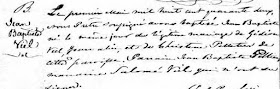 B.
Jean
Baptiste
Viel
Le premier mai mil huit cent quarante deux
nous Prêtre soussigné avons baptisé Jean Baptiste
né le même jour du légitime mariage de Gédéon
Viel, Journalier, et de Christine Pelletier de
cette paroisse. Parrain Jean Baptiste
marraine Salomé Viel qui n'ont su
signer.